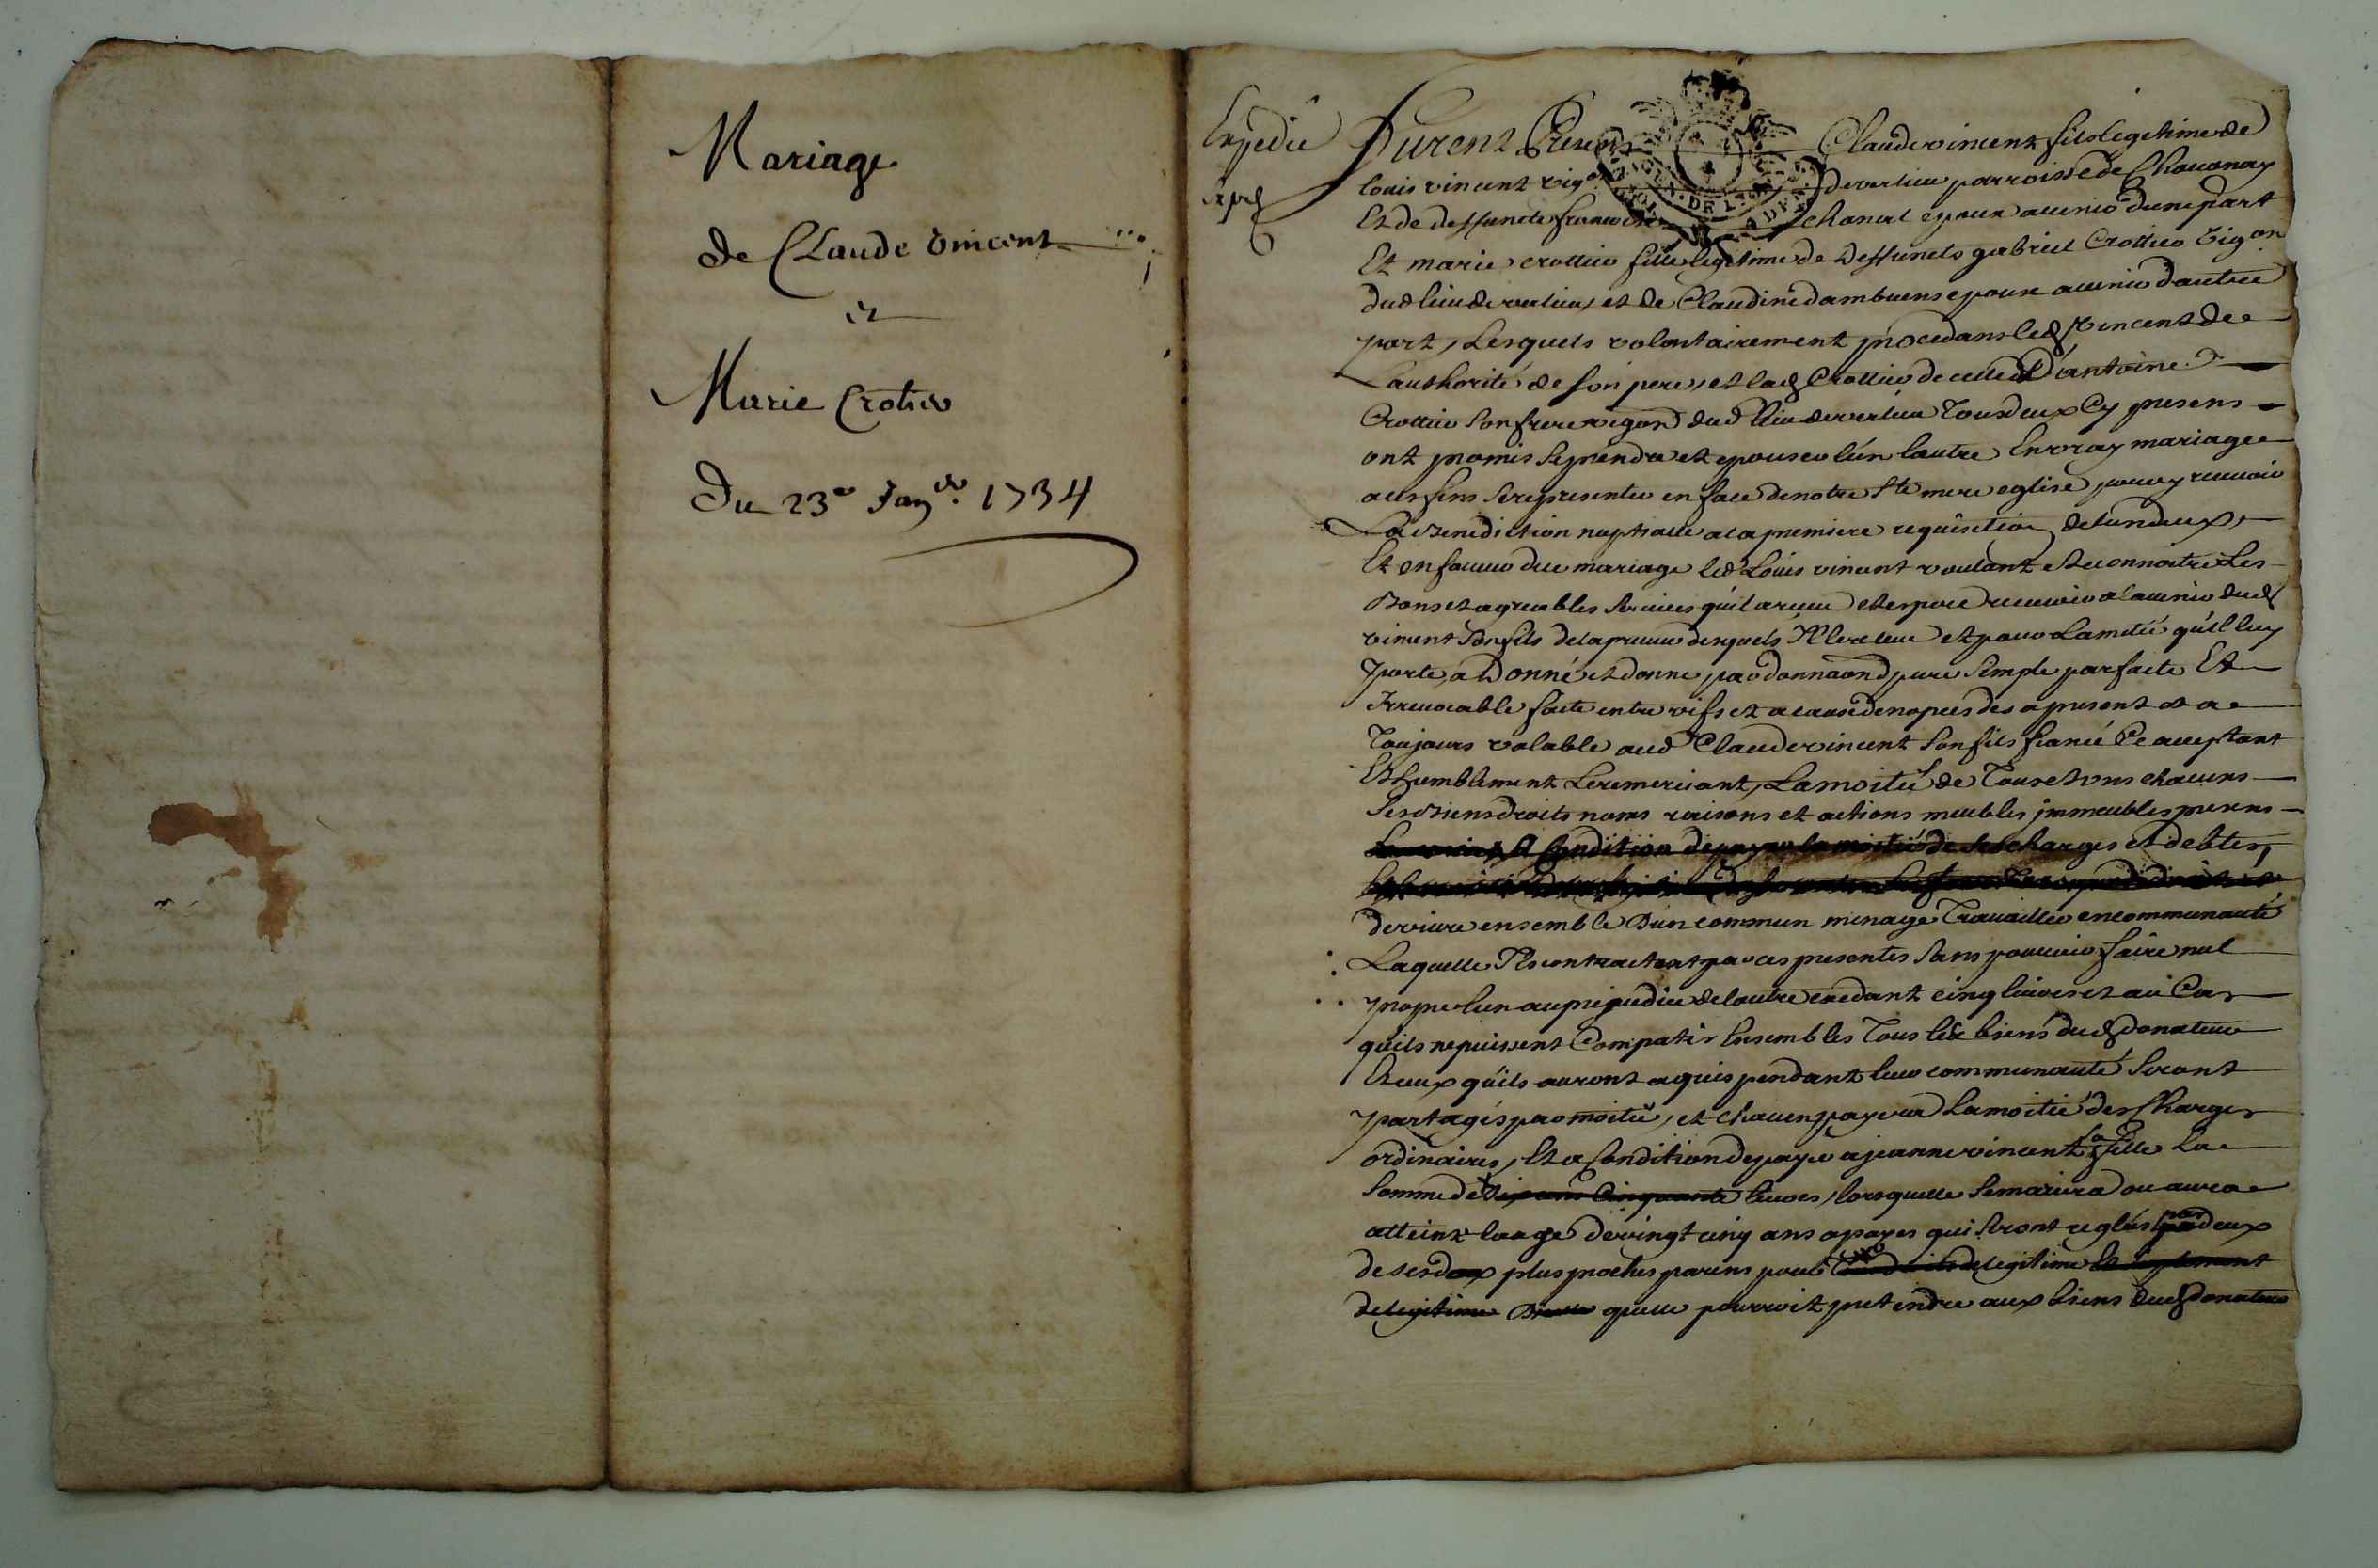 Mariage
de Claude Vincent
et
Marie Crotier
Du 23e Janer. 1734
Expedié
Furent Presens Claude vincent fils legitime de
louis vincent vigon de verlieu parroisse de Chavanay
Et de deffuncte francoise chanal epoux avenir dune part
Et marie crottier fille legitime de deffuncts gabriel Crottier Vigon
dud lieu de verlieu, et de Claudine dambuens epouse avenir dautre
part, Lesquels volontairement procedans led Vincent de
Lauthorité de son pere, et lad Crottier de celle D'antoine
Crottier son frere vigon dud lieu de verlieu Tous deux Cy presens
ont promis se prendre et epouser lún lautre En vray mariage
a ces fins se representer en face de notre Ste mere eglise pour y recevoir
La Benediction nuptialle a la premiere requisition de lun deux,
Et en faveur du mariage led Louis vincent voulant Reconnoitre Les
Bons et agreables services qúil a receu et espere recevoir a lavenir dud
vincent son fils de la preuve desquels Il le releve et pour Lamitié qu'il luy
porte, a Donné et donne par donnaond pure simple parfaite Et
Irrevocable faite entre vifs et a cause de nopces des a present et a
Toujours valable aud Claude vincent son fils fiancé Ce acceptant
Et humblement Le remerciant, La moitié de Tous et uns chacuns
ses Biens droits noms raisons et actions meubles immeubles presens
A Condition de payer la moitié de ses charges et debtes,
de vivre ensemble Dun commun menage Travailler en communauté
Laquelle Ils contractent par ces presentes sans pouvoir faire nul
propre lun au prejudice de lautre excedant cinq livres et au Cas
quils ne puissent Compatir Ensembles Tous les biens dud donateur
Et ceux qúils auront aquis pendant leur communauté seront
partagés par moitié, et chacun payera La moitié des Charges
ordinaires, Et a Condition de payer a jeanne vincent sa fille La
somme de cinquante livres, lorsquelle se mariera ou aura
atteint laage de vingt cinq ans a payes qui seront reglés par deux
de ses deux plus proches parens pour de legitime Et suplement
de legitime quelle pourroit pretendre aux biens dud donateur